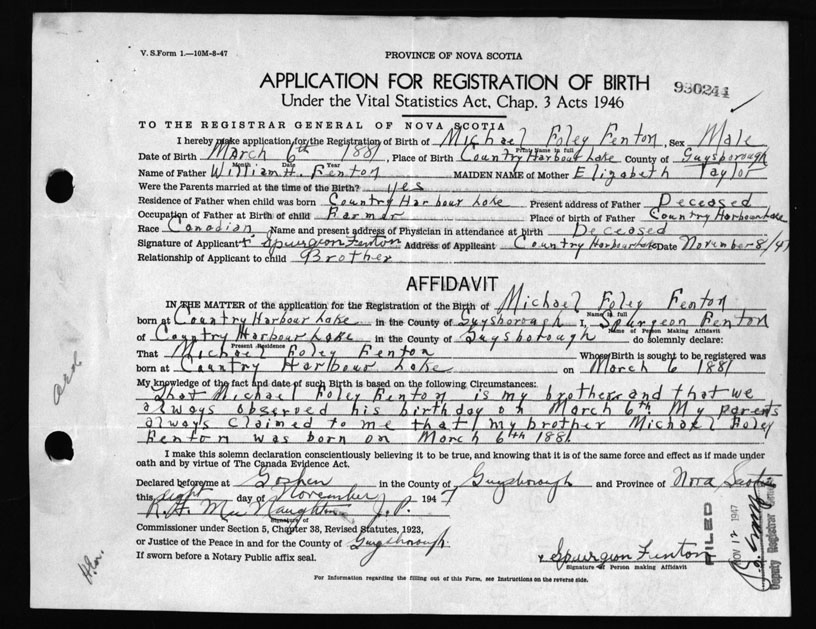 V. S. Form 1.—10M-8-47
PROVINCE OF NOVA SCOTIA
APPLICATION FOR REGISTRATION OF BIRTH
930244
Under the Vital Statistics Act, Chap. 3 Acts 1946
TO THE REGISTRAR GENERAL OF NOVA SCOTIA
I hereby make application for the Registration of Birth of Michael Foley Fenton, Sex Male
Print Name in full
Date of Birth March 6th 1881, Place of Birth Country Harbour Lake County of Guysborough
Month Date Year
Name of Father William H. Fenton MAIDEN NAME of Mother Elizabeth Taylor
Were the Parents married at the time of the Birth? yes
Residence of Father when child was born Country Harbour Lake Present address of Father Deceased
Occupation of Father at Birth of child Farmer Place of birth of Father Country Harbour Lake
Race Canadian Name and present address of Physician in attendance at birth Deceased
Signature of Applicant x Spurgeon Fenton Address of Applicant Country Harbour Lake Date November 8/47
Relationship of Applicant to child Brother
AFFIDAVIT
IN THE MATTER of the application for the Registration of the Birth of Michael Foley Fenton
Name in full
born at Country Harbour Lake in the County of Guysborough I, Spurgeon Fenton
Name of Person Making Affidavit
of Country Harbour Lake in the County of Guysborough do solemnly declare:
Present Residence
That Michael Foley Fenton Whose Birth is sought to be registered was
born at Country Harbour Lake on March 6 1881
My knowledge of the fact and date of such Birth is based on the following Circumstances:
That Michael Foley Fenton is my brother and that we
always observed his birthday on March 6th. My parents
always claimed to me that my brother Michael Foley
Fenton was born on March 6th 1881.
I make this solemn declaration conscientiously believing it to be true, and knowing that it is of the same force and effect as if made under
oath and by virtue of The Canada Evidence Act.
Declared before me at Goshen in the County of Guysborough and Province of Nova Scotia
this eight day of November 1947
R. H. MacNaughton J. P.
Signature of
Commissioner under Section 5, Chapter 38, Revised Statutes, 1923,
or Justice of the Peace in and for the County of Guysborough.
If sworn before a Notary Public affix seal.
x Spurgeon Fenton
Signature of Person making Affidavit
For Information regarding the filling out of this Form, see Instructions on the reverse side.
FILED
NOV 12 1947
Deputy Registrar General